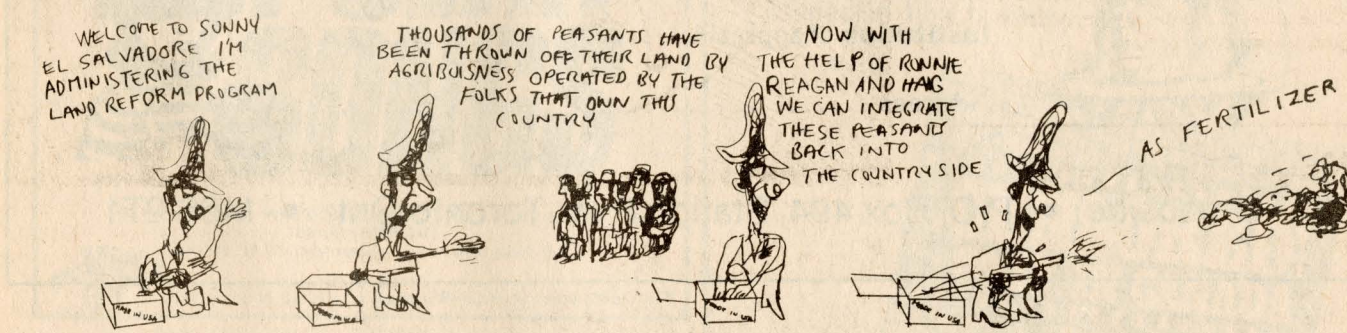 WELCOME TO SUNNY
EL SALVADORE I'M
ADMINISTERING THE
LAND REFORM PROGRAM
THOUSANDS OF PEASANTS HAVE
BEEN THROWN OFF THEIR LAND BY
AGRIBUISNESS OPERATED BY THE
FOLKS THAT OWN THIS
COUNTRY
NOW WITH
THE HELP OF RONNIE
REAGAN AND HAIG
WE CAN INTEGRATE
THESE PEASANTS
BACK INTO
THE COUNTRYSIDE
AS FERTILIZER
MADE IN USA
MADE IN USA
MADE IN USA